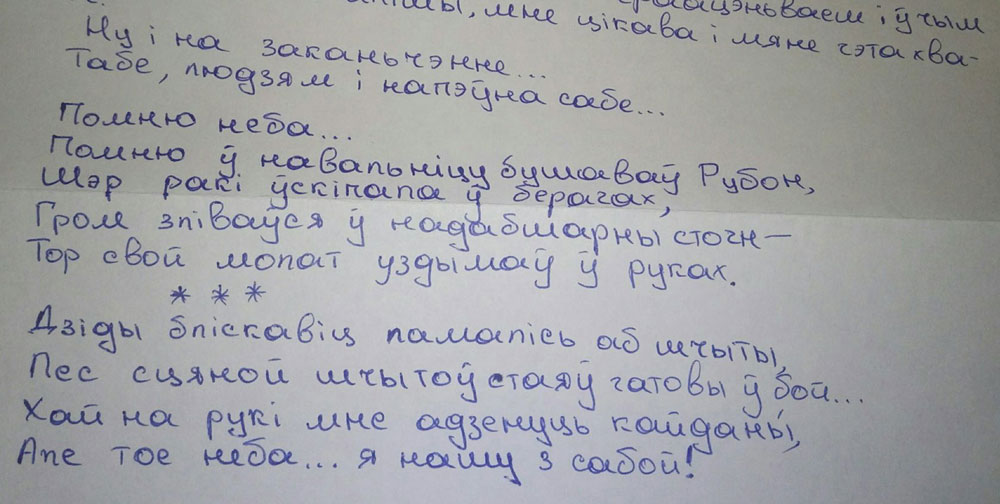 і ў чым
мне цікава і мяне гэта хва-
Ну і на заканьчэнне...
Табе, людзям і напэўна сабе...
Помню неба...
Помню ў навальніцу бушаваў Рубон,
Шэр ракі ўскіпала ў берагах,
Гром зліваўся ў надабшарны стогн—
Тор свой молат уздымаў ў руках.
* * *
Дзіды бліскавіц ламалісь аб шчыты,
Лес сцяной шчытоў стаяў гатовы ў бой...
Хай на рукі мне адзенуць кайданы,
Але тое неба... я нашу з сабой!